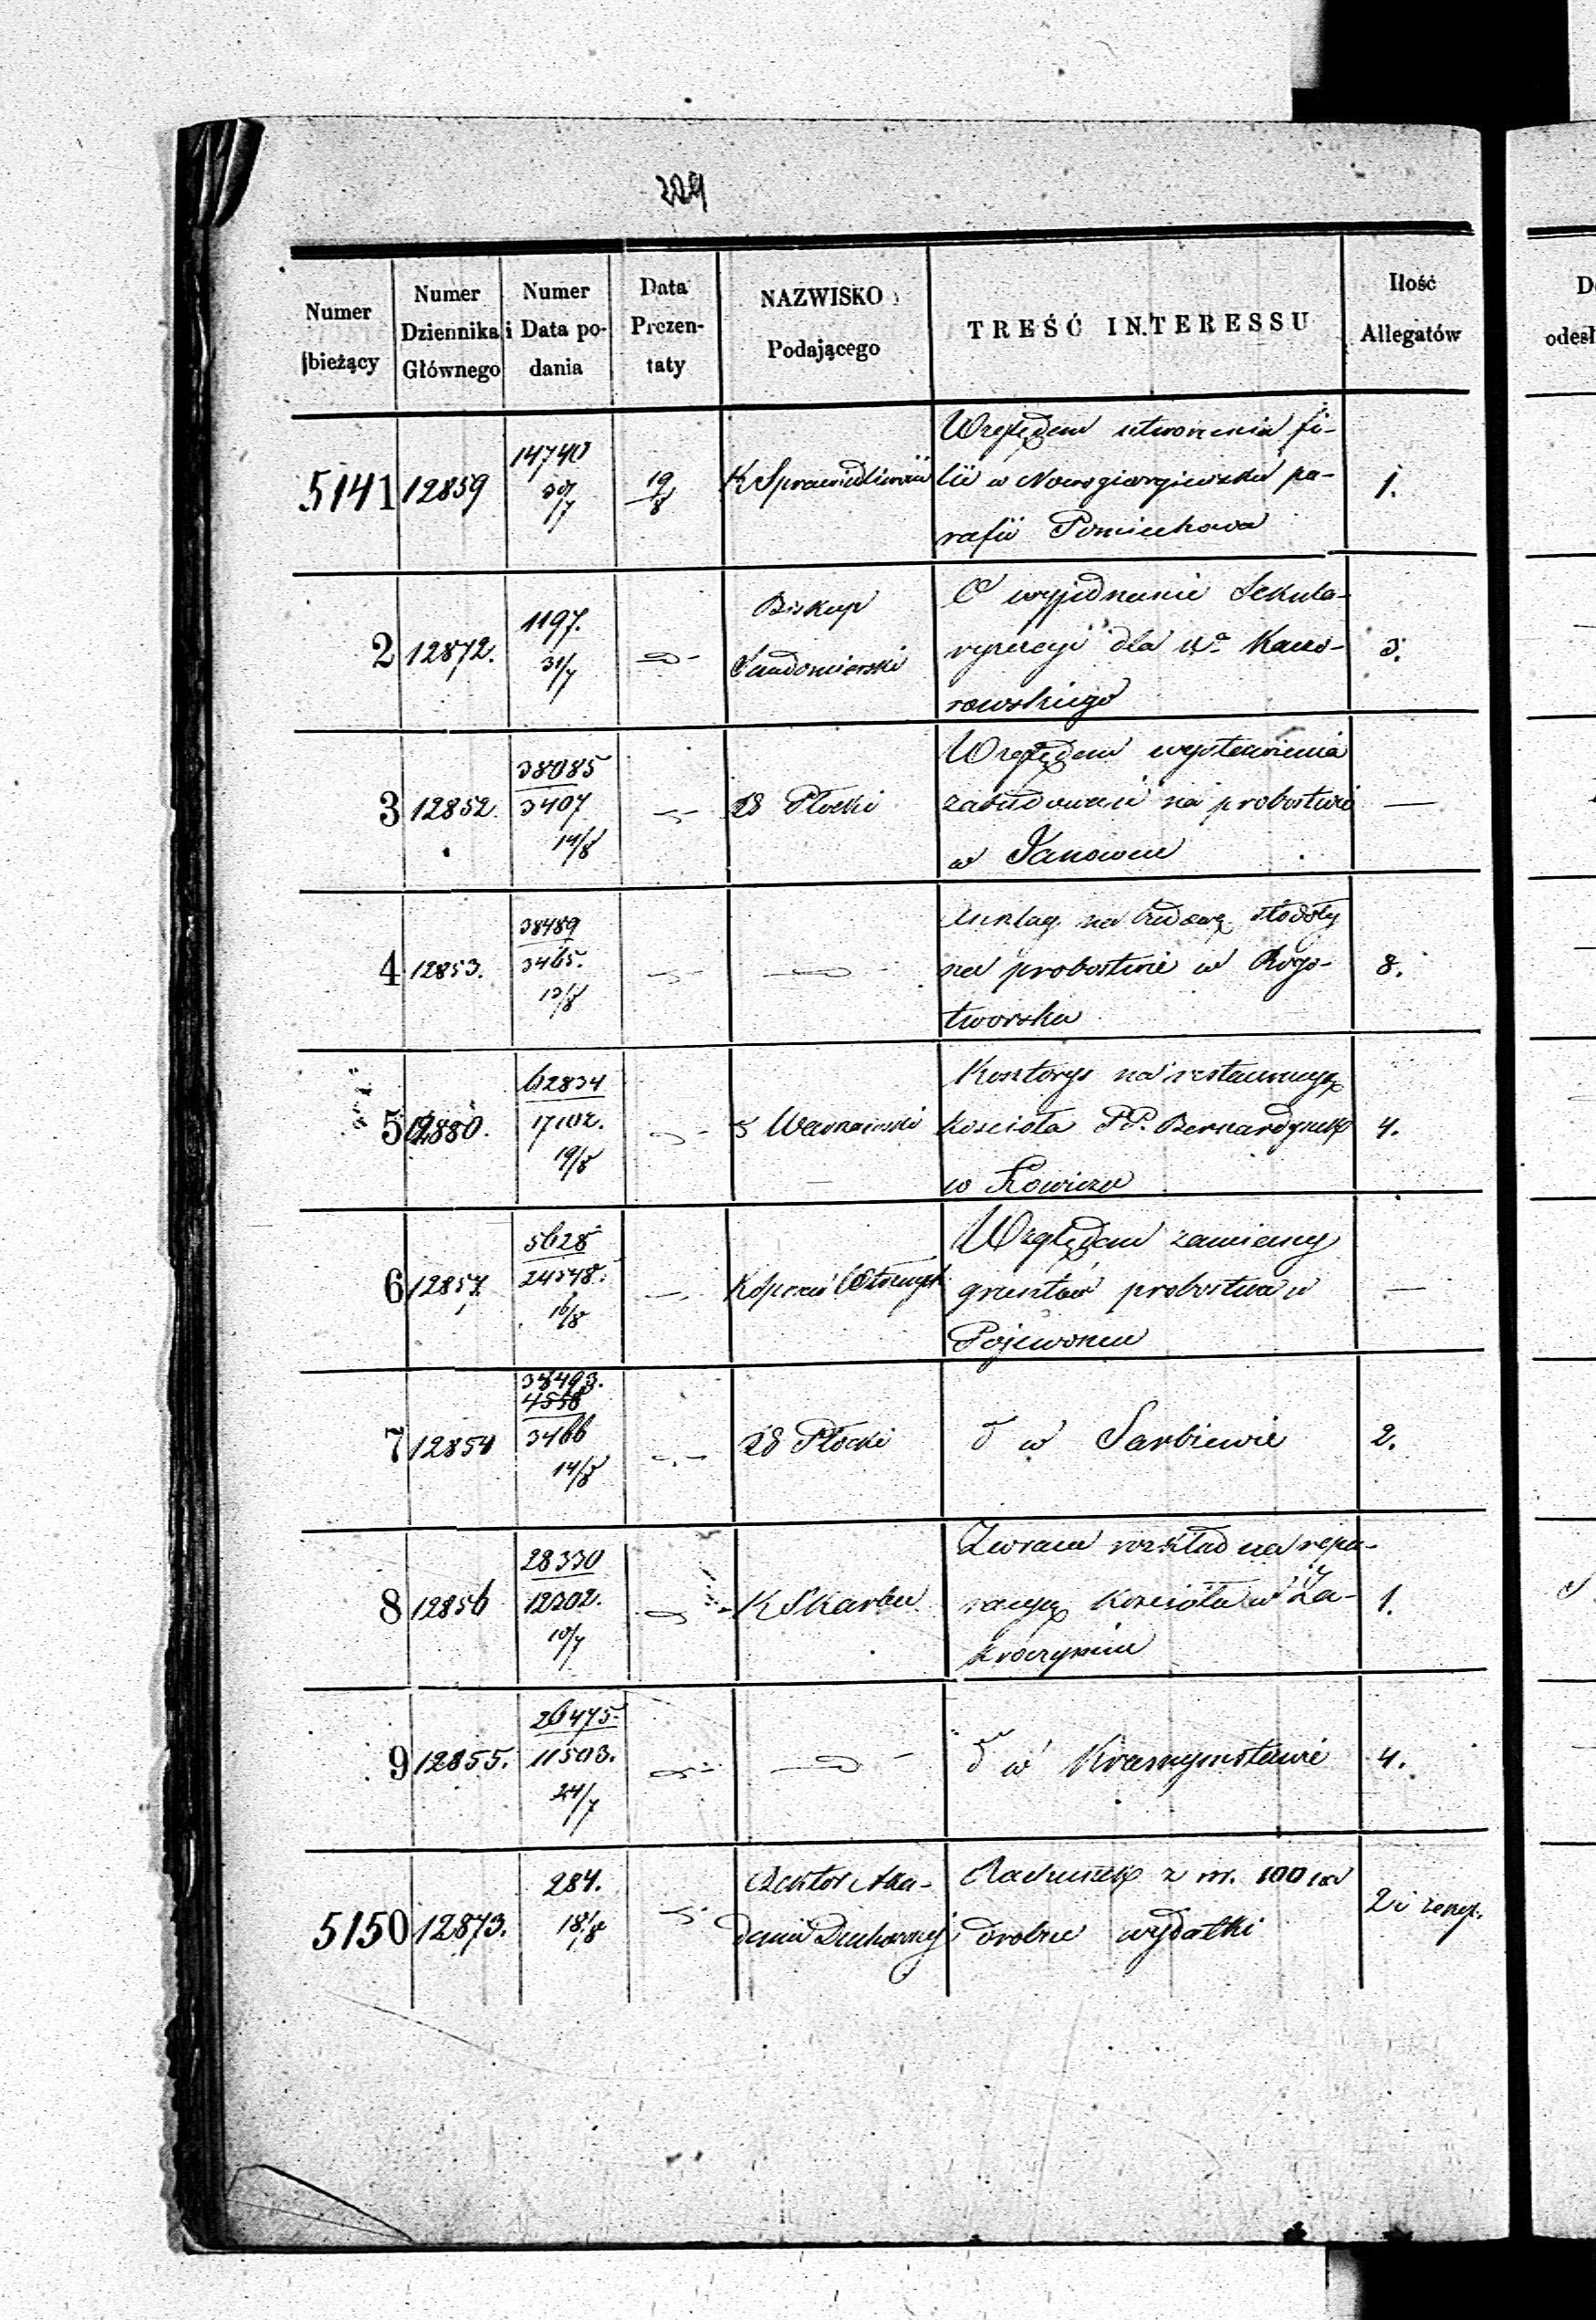 229
Numer bieżący
Numer Dziennika Głównego
Numer i Data podania
Data Prezentaty
NAZWISKO Podającego
TREŚĆ INTERESSU
Ilość Allegatów
5141 12859 14740 30/7 19/8 K Sprawiedliwości
Względem utworzenia fi-
lii w Nowogiorgiewsku pa-
rafii Pomiechowa
1.
2 12872. 1197. 31/7 Biskup
Sandomierski
O wyjednanie Sekula-
ryzacyi dla
rowskiego
3.
3 12852. 38085
3407
14/8
Płocki
Względem wystawienia
zabudowań na probostwie
w Janowcu
—
4 12853. 38489
3465.
13/8
na budowę stodoły
na probostwie w Rogo-
tworsku
8.
5 12880. 62834
17102.
19/8
Warszawski
Kosztorys na restauracyą
kościoła PP. Bernardynek
w Łowiczu
4.
6 12857 5628
24548.
16/8
Względem zamiany
gruntów probostwa w
Pojewoniu
—
7 12854 38493.
4558
3466
14/8
Płocki
d w Sarbiewie
2.
8 12856 28330
12202.
10/7
K Skarbu
Zwraca rozkład na repa-
racyą kościoła w Za-
kroczymiu
1.
9 12855. 26475.
11503.
24/7
d w Krasnymstawie
4.
5150 12873. 284.
18/8
Rektor Aka-
demii Duchownej
Rachunek z rs. 100 na
drobne wydatki
2 i